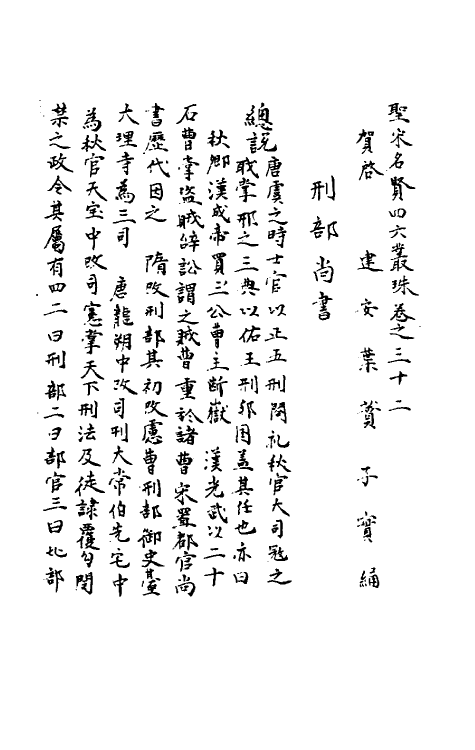 聖宋名賢四六叢珠卷之三十二
賀啓　建安葉蕡子實編
刑部尚書
總說唐虞之時士官以正五刑閱礼秋官大司冠之
職掌邢之三典以佑王刑邦囯盖其任也亦曰
秋卿漢成帝買三公曹主断嶽　漢光武以二十
石曹掌盗賊辞訟謂之賊曹重於諸曹宋置都官尚
書歷代因之　隋改刑部其初改慮曹刑部御史䑓
大理寺為三司　唐龍朔中改司刑大常伯先宅中
為秋官天宝中改司憲掌天下刑法及徒隷覆勾関
禁之政令其屬有四二曰刑部二曰部官三曰比部